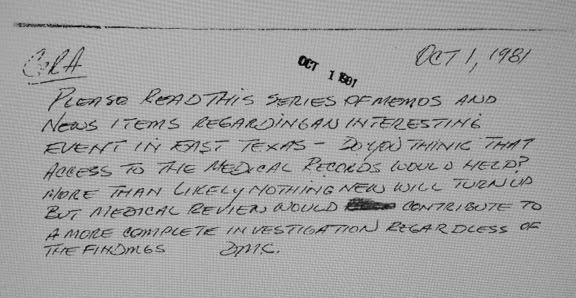 CORA
OCT 1, 1981
OCT 1 1981
PLEASE READ THIS SERIES OF MEMOS AND
NEWS ITEMS REGARDING AN INTERESTING
EVENT IN EAST TEXAS - DO YOU THINK THAT
ACCESS TO THE MEDICAL RECORDS WOULD HELP?
MORE THAN LIKELY NOTHING NEW WILL TURN UP
BUT MEDICAL REVIEW WOULD CONTRIBUTE TO
A MORE COMPLETE INVESTIGATION REGARDLESS OF
THE FINDINGS DMC.